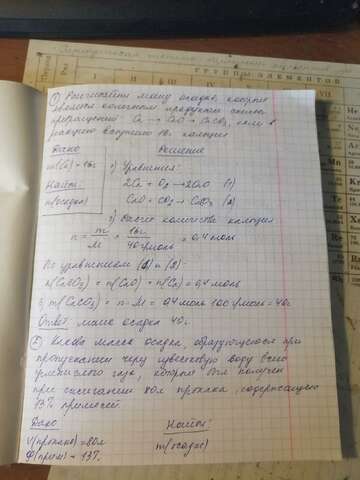 Периодическая система
ГРУППЫ ЭЛЕМЕНТОВ
Период
Ряд
I II III IV V VII
1) Рассчитайте массу осадка, который
является конечным продуктом схемы
превращений: Ca → CaO → CaCO₃, если в
реакцию вступило 16г кальция
Дано Решение
m(Ca) = 16г 1) Уравнения:
Найти: 2Ca + O₂ → 2CaO (1)
m(осадка) CaO + CO₂ → CaCO₃ (2)
2) Расчёт количества кальция
n = m/M = 16г/40г/моль = 0,4 моль
По уравнениям (1) и (2):
n(CaCO₃) = n(CaO) = n(Ca) = 0,4 моль
3) m(CaCO₃) = n·M = 0,4 моль·100г/моль = 40г
Ответ: масса осадка 40г
2) Какова масса осадка, образующегося при
пропускании через известковую воду всего
углекислого газа, который был получен
при сжигании 80л пропана, содержащего
13% примесей
Дано Найти:
V(пропана) = 80л m(осадка)
φ(прим) = 13%